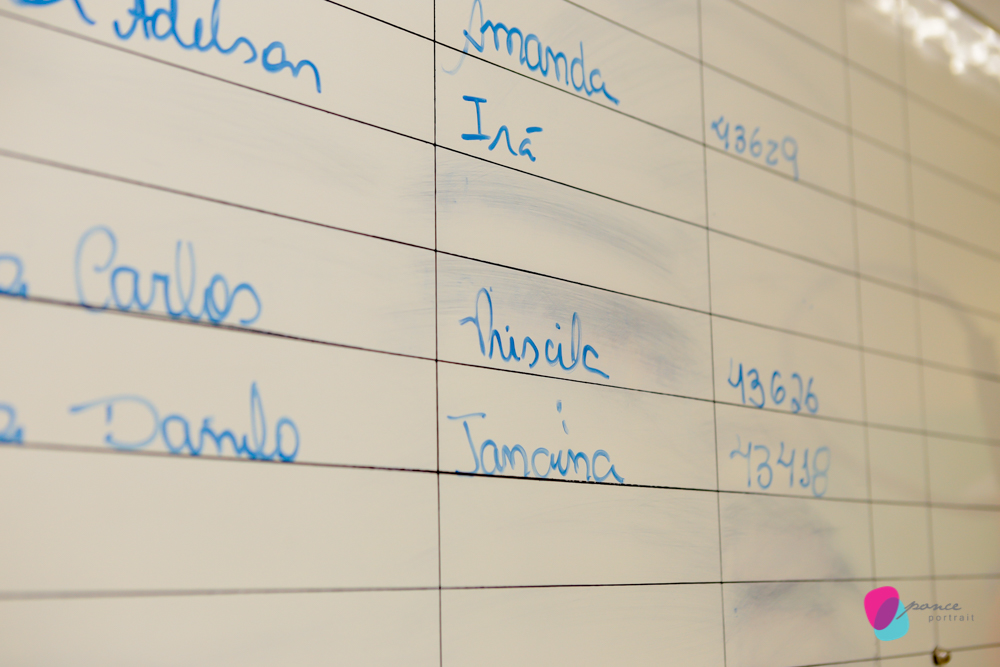 Adelson Amanda
Irã 43629
a Carlos Priscila 43626
a Danilo Janaina 43418
ponce
portrait